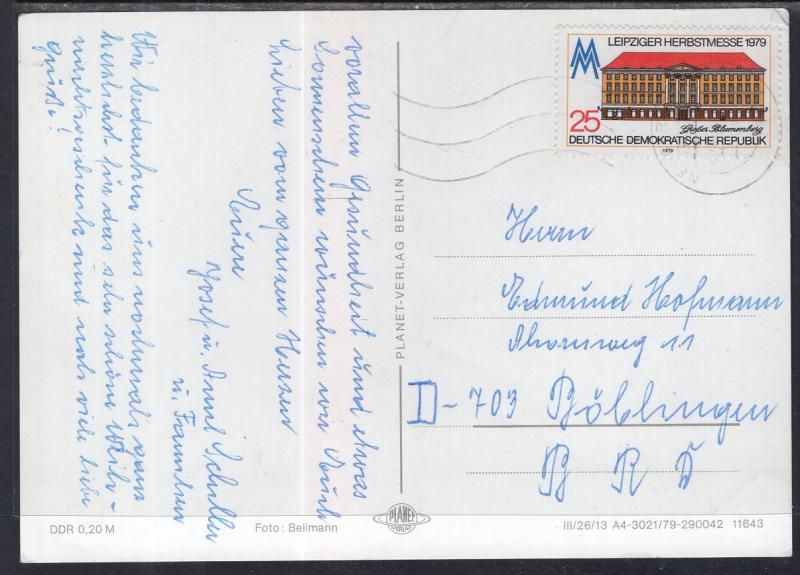 vorallem Gesundheit und etwas
Sonnenschein wünschen wir Euch
Lieben vom ganzen Herzen
Eure
Josef u. Anni Schuller
u. Familien
Wir bedanken uns nochmals ganz
herzlichst für das sehr schöne Weih-
nachtsgeschenk und noch viele liebe
Grüße!
PLANET-VERLAG BERLIN
LEIPZIGER HERBSTMESSE 1979
25
Großer Blumenberg
DEUTSCHE DEMOKRATISCHE REPUBLIK
1979
Herrn
Edmund Hofmann
Ahornweg 11
D-703 Böblingen
BRD
DDR 0,20 M
Foto: Beilmann
PLANET
VERLAG
III/26/13 A4-3021/79-290042 11643